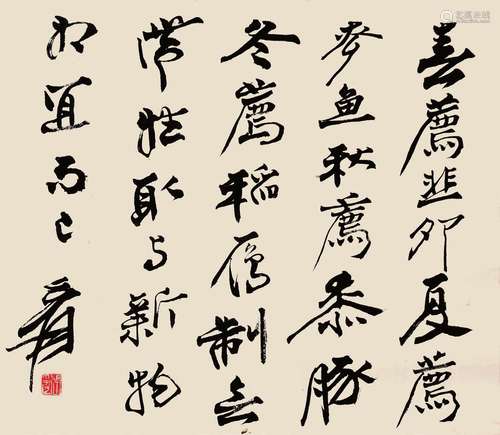 春薦韭卵夏薦
麥魚秋薦黍豚
冬薦稻鴈制無
常牲取与新物
相宜而已
爰